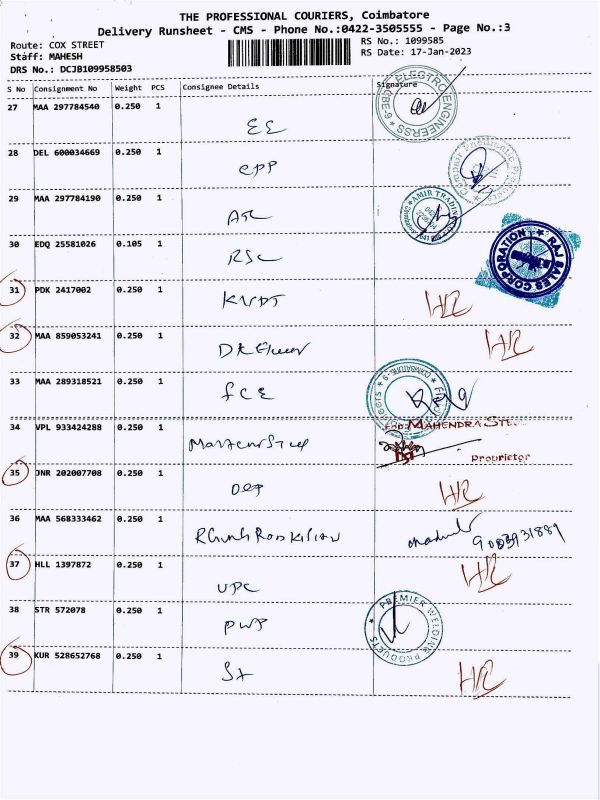 THE PROFESSIONAL COURIERS, Coimbatore
Delivery Runsheet - CMS - Phone No.:0422-3505555 - Page No.:3
Route: COX STREET
Staff: MAHESH
DRS No.: DCJB109958503
RS No.: 1099585
RS Date: 17-Jan-2023
S No Consignment No Weight PCS Consignee Details Signature
27 MAA 297784540 0.250 1 EE
28 DEL 600034669 0.250 1 CPP
29 MAA 297784190 0.250 1
AMIR TRADING
30 EDQ 25581026 0.105 1 RSC
RAJ SALES CORPORATION
31 PDK 2417002 0.250 1
32 MAA 859053241 0.250 1
33 MAA 289318521 0.250 1 FCE
34 VPL 933424288 0.250 1
For MAHENDRA
Proprietor
35 JNR 202007708 0.250 1
36 MAA 568333462 0.250 1
37 HLL 1397872 0.250 1 UPC
38 STR 572078 0.250 1 PWP
PREMIER WELDING PRODUCTS
39 KUR 528652768 0.250 1